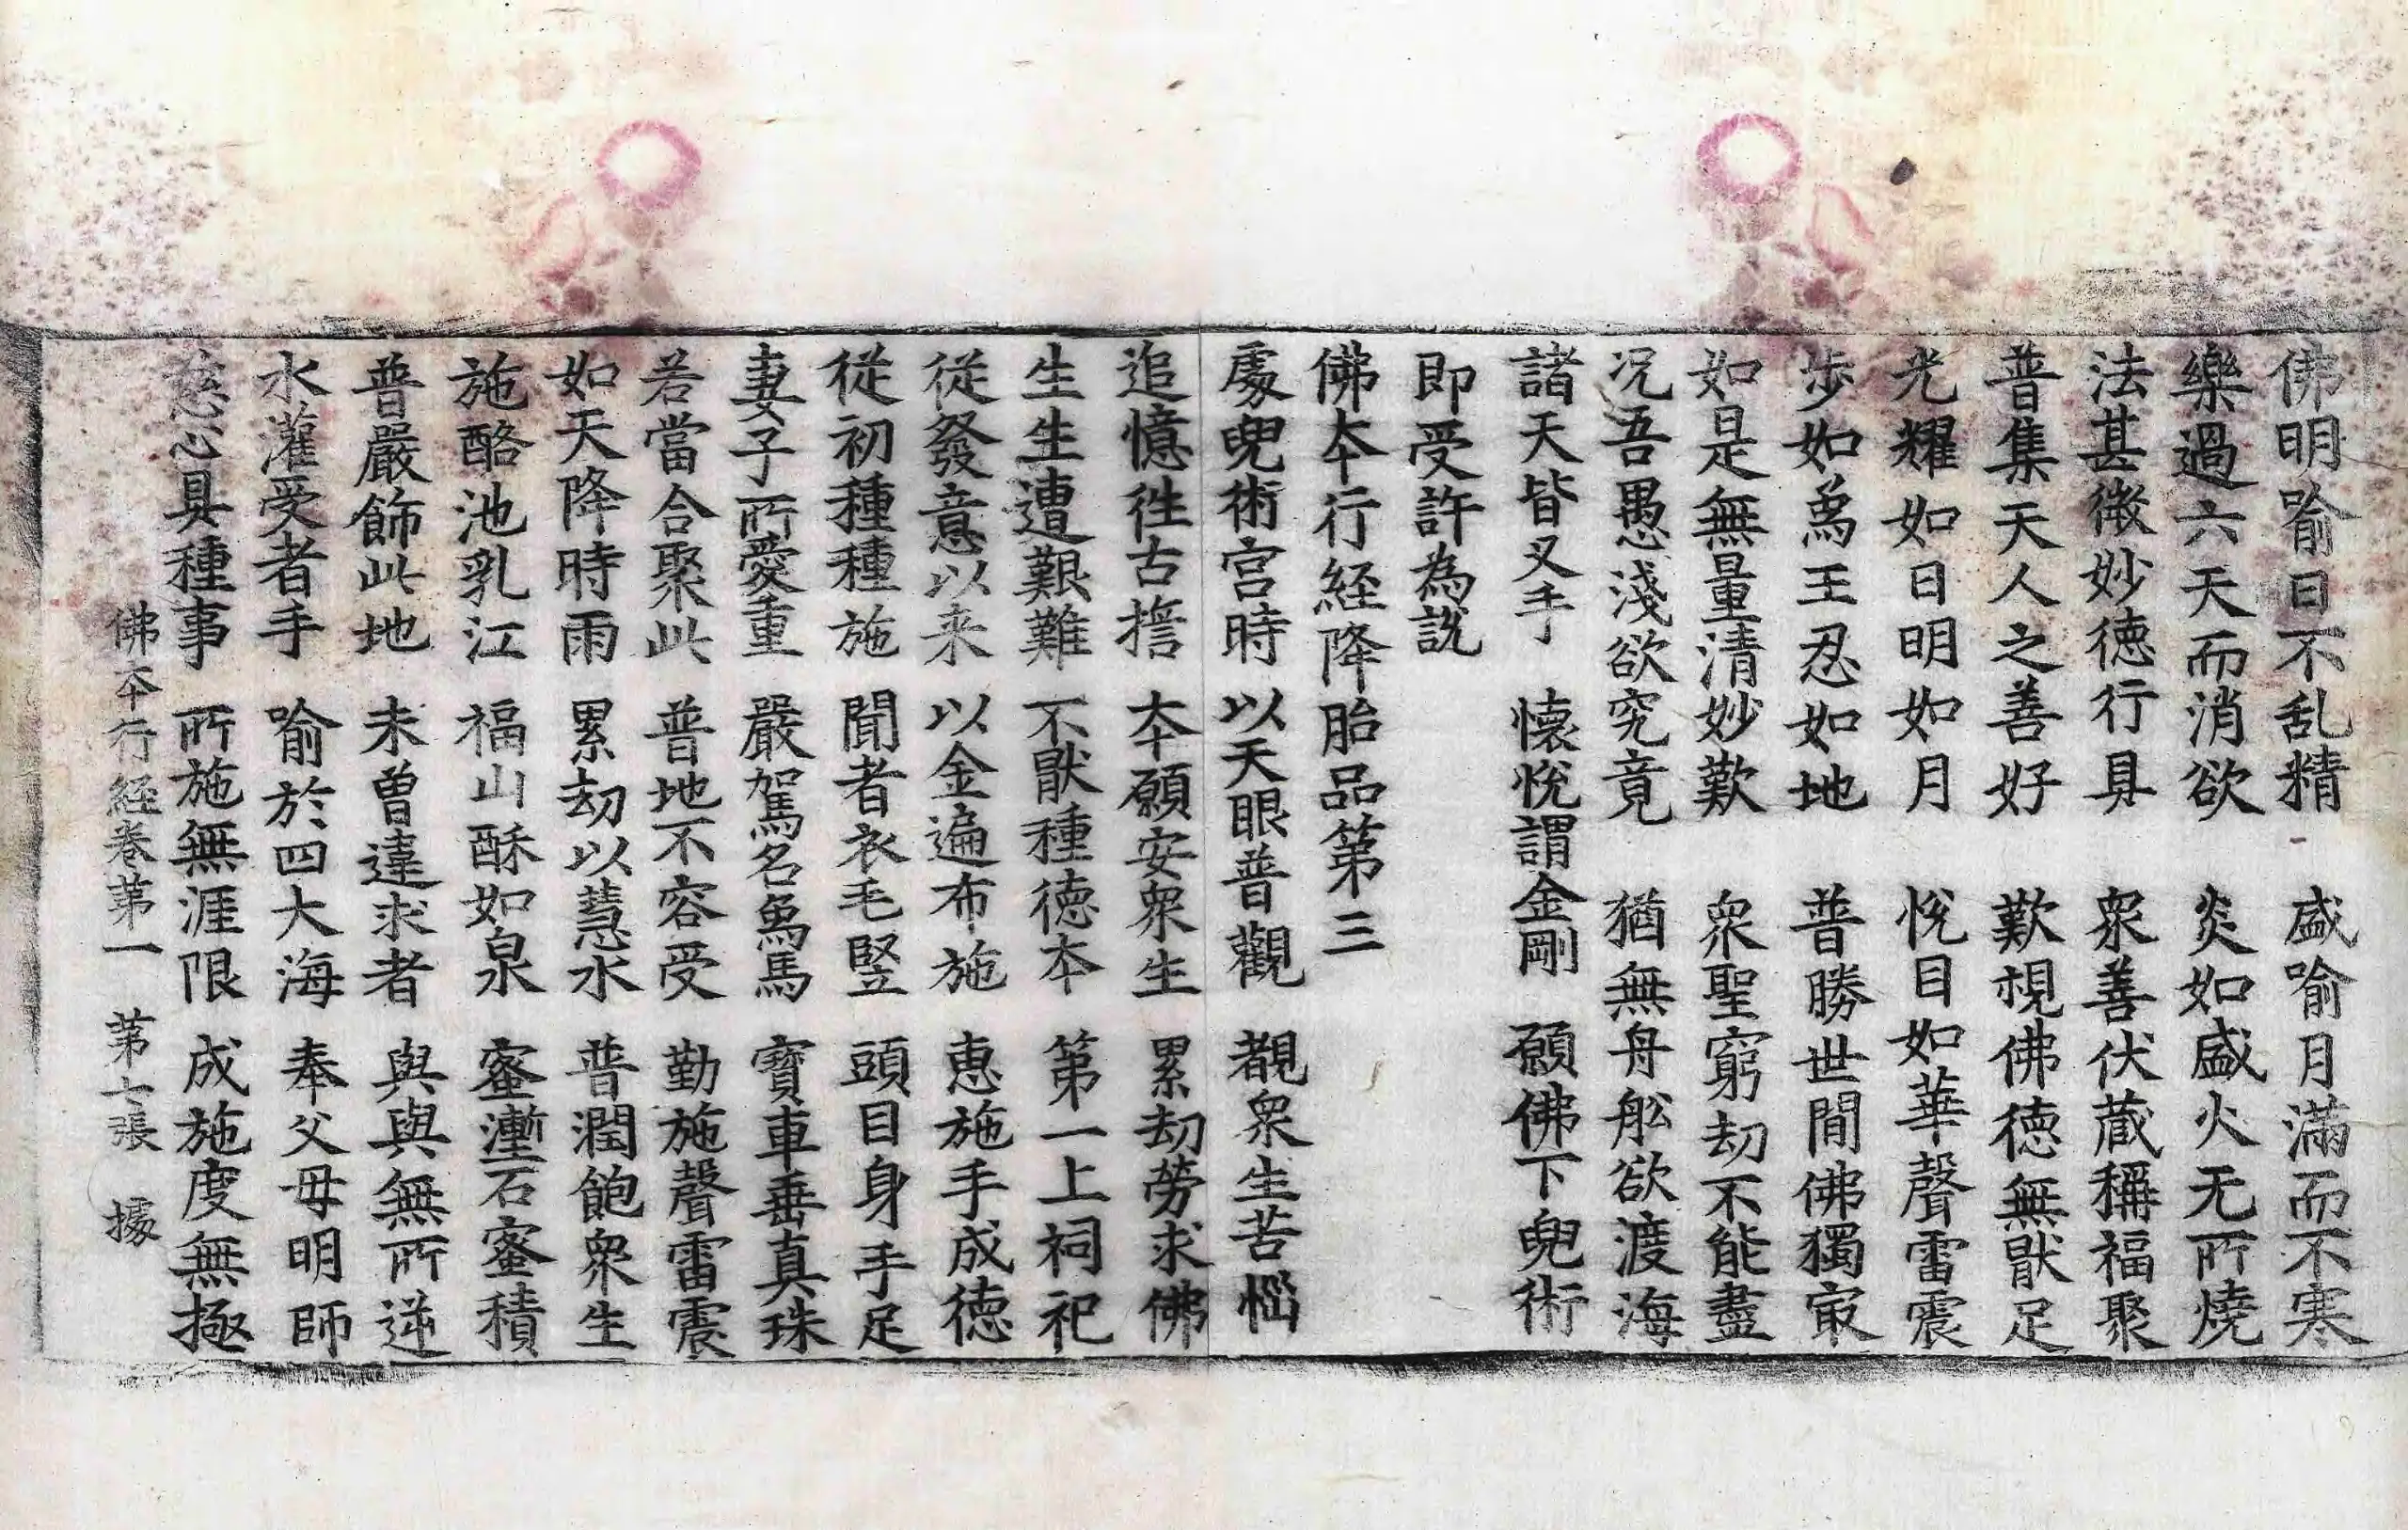 佛明喻日不乱精　盛喻月滿而不寒
樂過六天而消欲　炎如盛火无所燒
法甚微妙德行具　衆善伏藏稱福聚
普集天人之善好　歎視佛德無猒足
光耀如日明如月　悅目如華聲雷震
步如為王忍如地　普勝世間佛獨㝡
如是無量清妙歎　衆聖窮劫不能盡
况吾愚淺欲究竟　猶無舟舩欲渡海
諸天皆叉手　懷悅謂金剛　願佛下兜術
即受許為說
佛夲行経降胎品第三
處兜術宮時　以天眼普觀　覩衆生苦惱
追憶徃古誓　夲願安衆生　累劫勞求佛
生生遭艱難　不猒種德夲　第一上祠祀
從發意以来　以金遍布施　惠施手成德
從初種種施　聞者衣毛竪　頭目身手足
妻子所愛重　嚴駕名象馬　寶車垂真珠
若當合聚此　普地不容受　勤施聲雷震
如天降時雨　累劫以慧水　普潤飽衆生
施酪池乳江　福山酥如泉　蜜漸石蜜積
普嚴飾此地　未曾違求者　與與無所逆
水灌受者手　喻於四大海　奉父母明師
慈心具種事　所施無涯限　成施度無極
佛夲行経卷苐一　苐七張　據